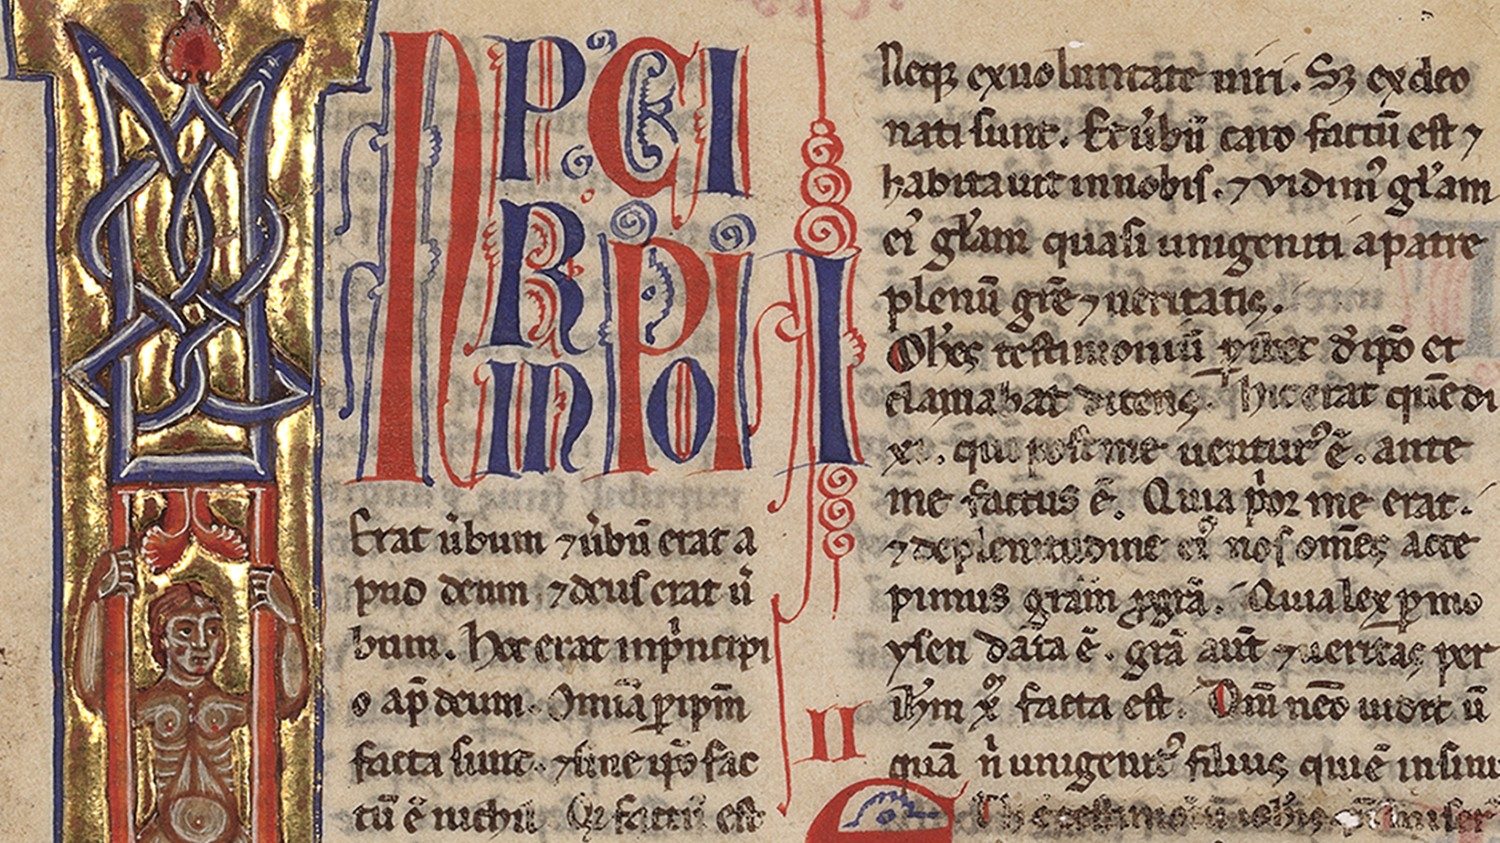 IN P CI
R PI
IN O
Erat u̓bum ⁊ u̓bū erat a
pud deum ⁊ deus erat u̓
bum. Hoc erat in pͥncipi
o ap̄ deum. Omīa ꝑ ipm̄
facta sunt. ⁊ sine ip̄o fac
tū ē nichil. Qͩ factū est
I
Neqꝫ ex uoluntate uiri. Sꝫ ex deo
nati sunt. Et u̓bū caro factū est ⁊
habitauit in nobis. ⁊ vidimꝰ gl̄am
eiꝰ gl̄am quasi unigeniti a patre
plenū gr̄e ⁊ ueritatis.
Ioh̄es testimoniū ꝑhibet d̓ ip̄o et
clamabat dicens. Hic erat quē di
xi. qui post me uenturꝰ ē. ante
me factus ē. Quia pͥor me erat.
⁊ de plenitudine eiꝰ nos om̄es acce
pimus gr̄am ꝓ gr̄a. Quia lex ꝑ mo
ysen data ē. gr̄a aut̄ ⁊ ueritas per
ih̄m xp̄m facta est. Dm̄ nēo uidit ū
quā nͥ unigenitꝰ filius qui ē in sinu
II